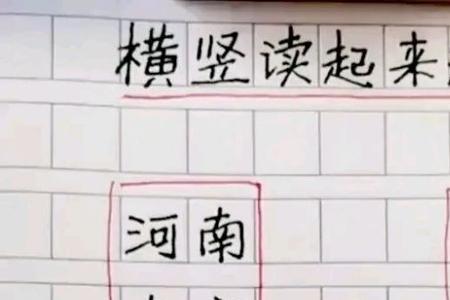 横竖读起来
河南